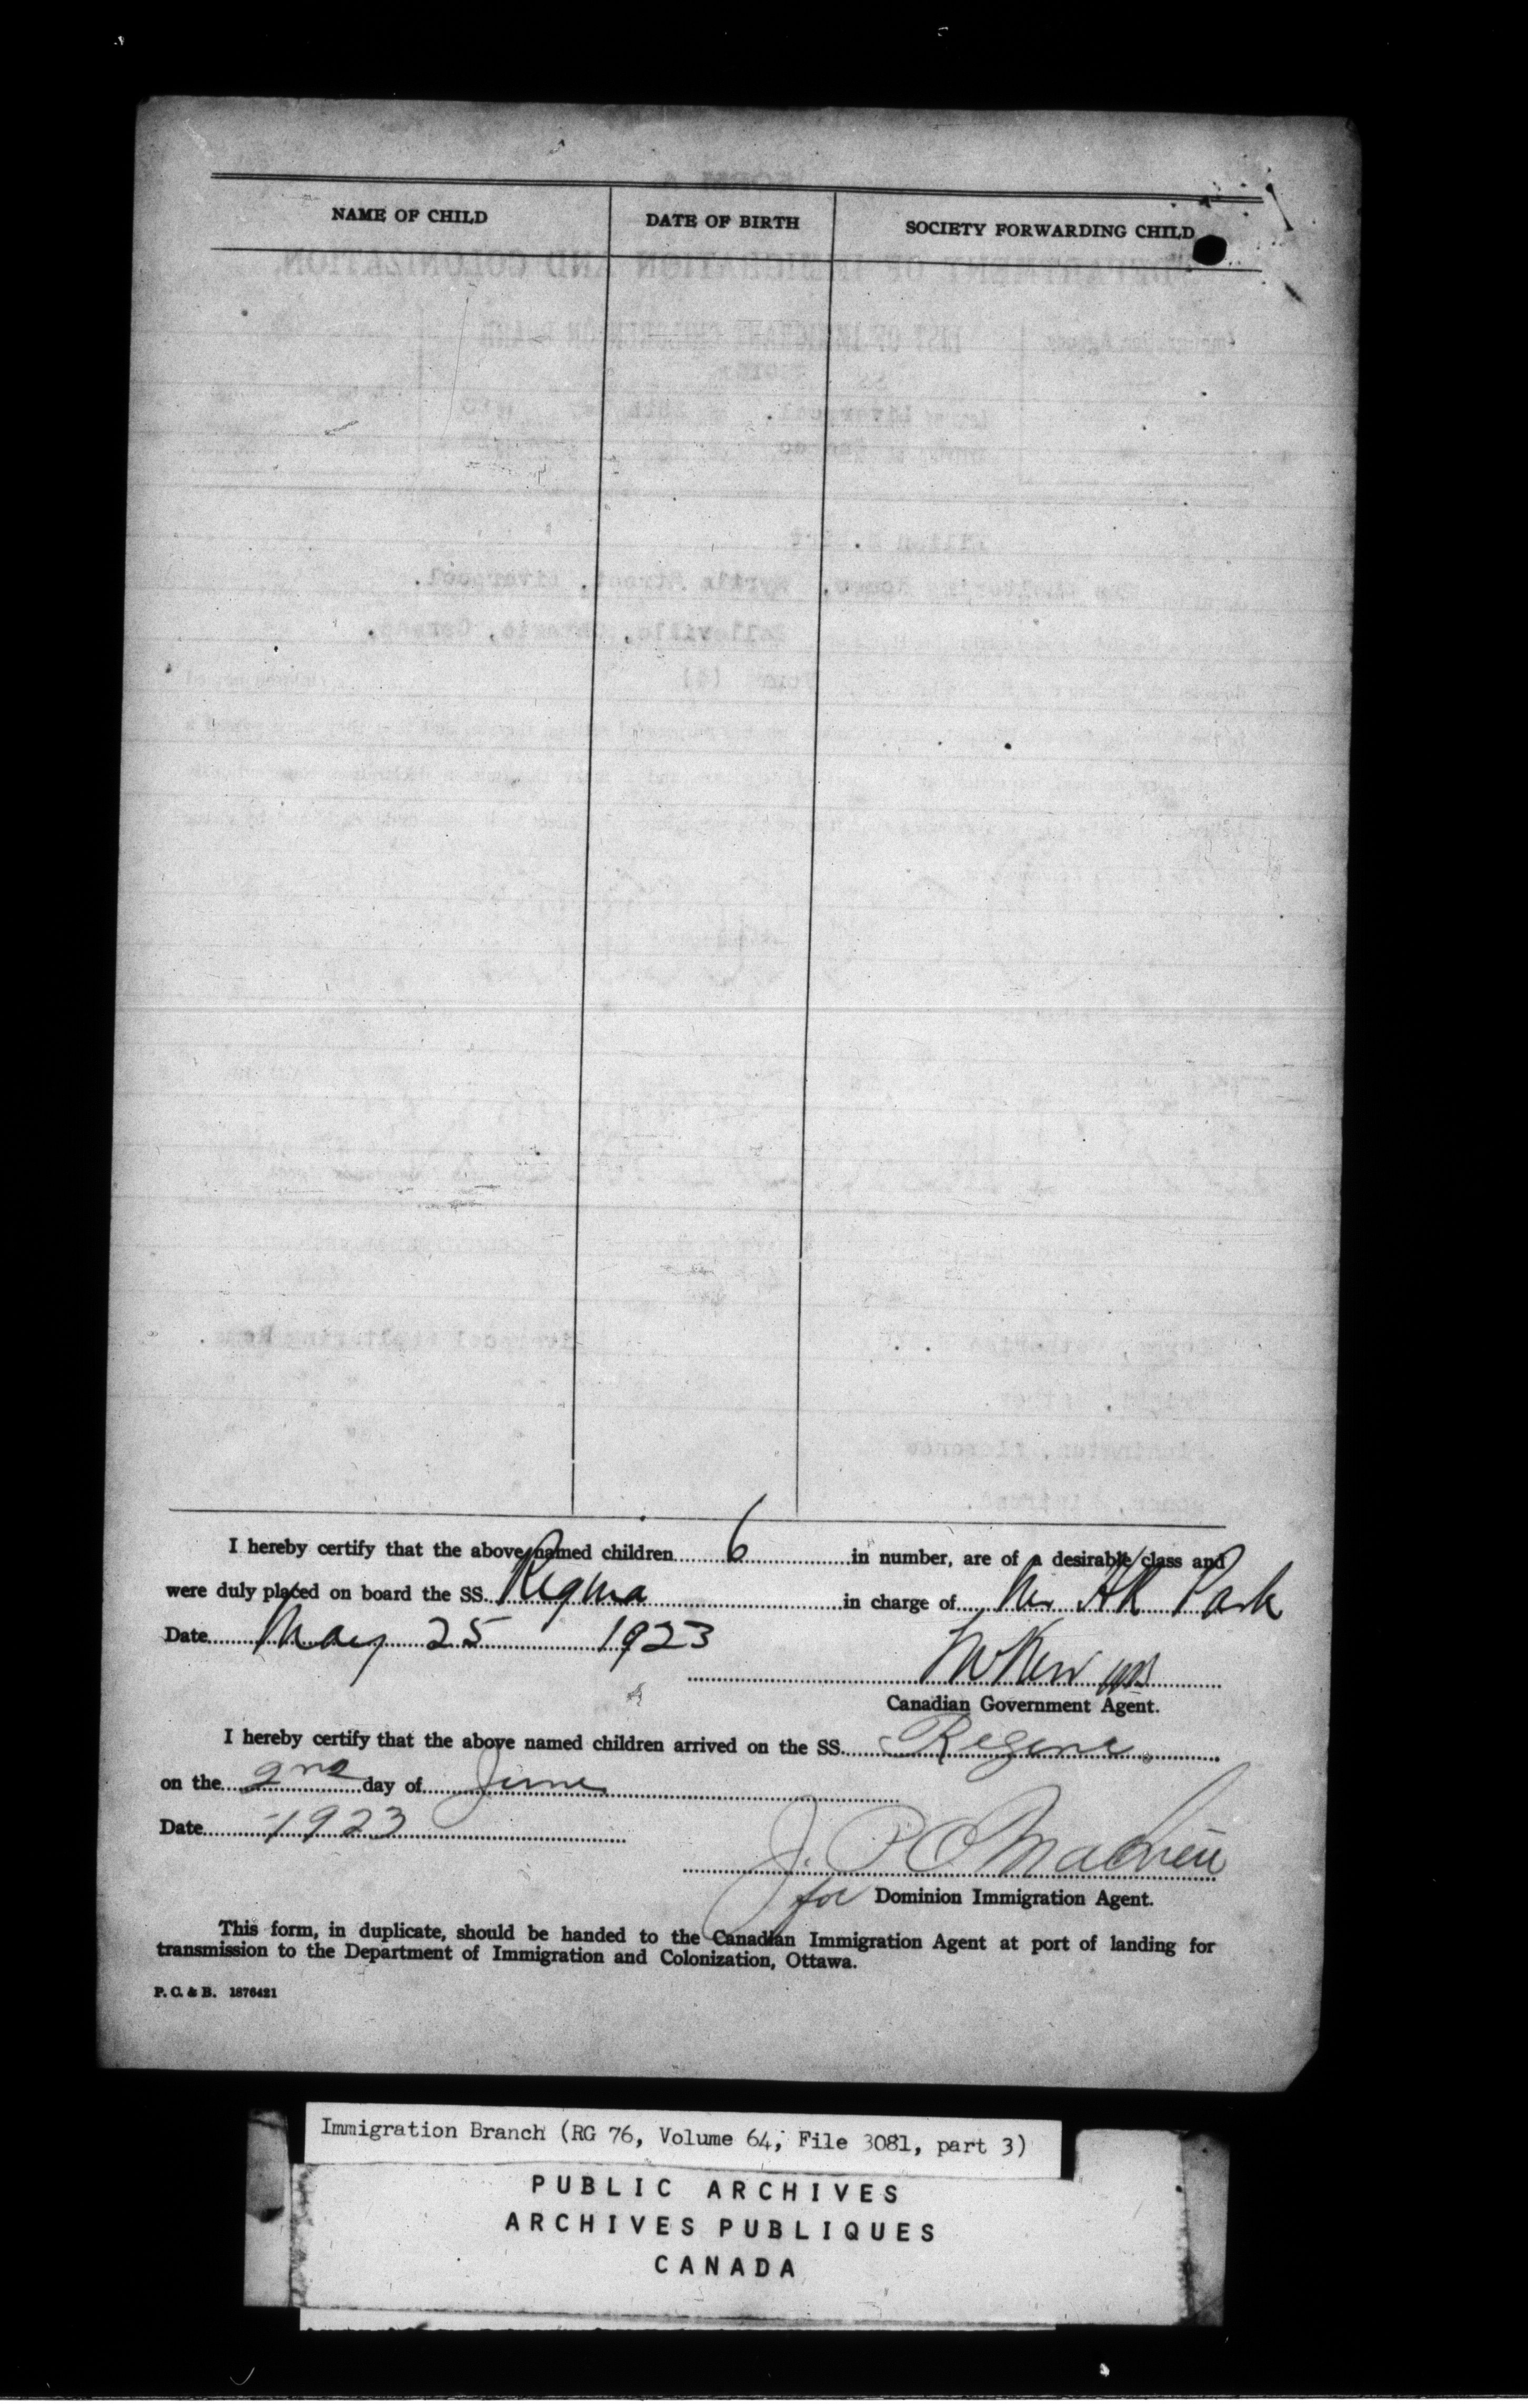 NAME OF CHILD DATE OF BIRTH SOCIETY FORWARDING CHILD
I hereby certify that the above named children 6 in number, are of a desirable class and
were duly placed on board the SS. Regina in charge of H R Park
Date May 25 1923
Canadian Government Agent.
I hereby certify that the above named children arrived on the SS. Regina
on the 2nd day of June
Date 1923
J. P. O
for Dominion Immigration Agent.
This form, in duplicate, should be handed to the Canadian Immigration Agent at port of landing for
transmission to the Department of Immigration and Colonization, Ottawa.
P. C. & B. 1876421
Immigration Branch (RG 76, Volume 64, File 3081, part 3)
PUBLIC ARCHIVES
ARCHIVES PUBLIQUES
CANADA